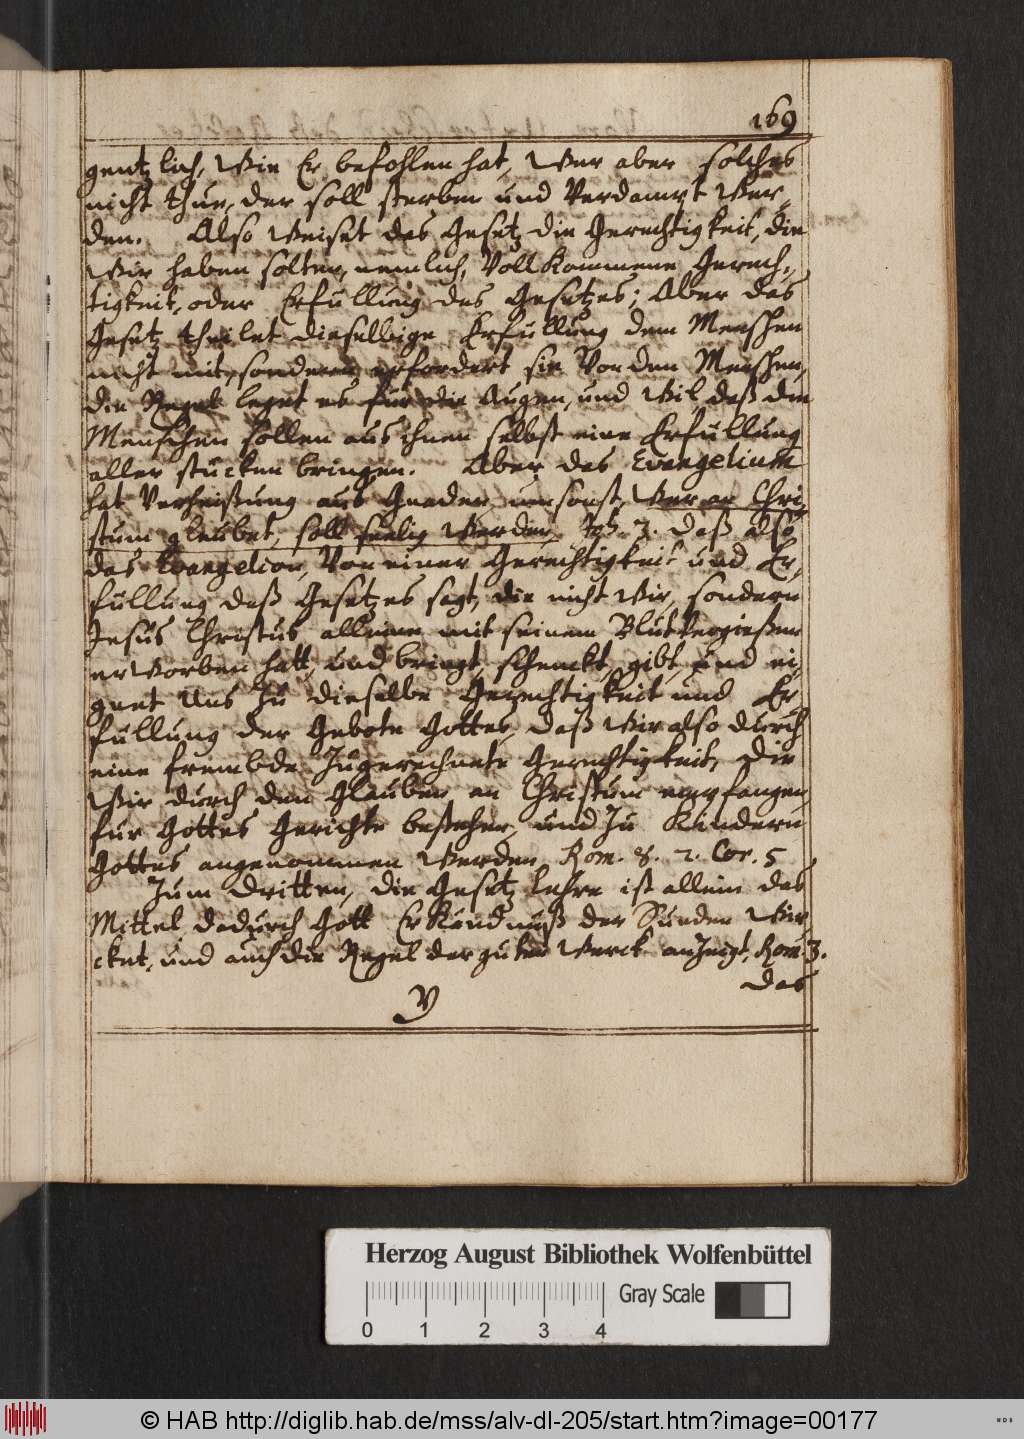 169
gentzlich, Wie Er befohlen hat, Wer aber solches
nicht thue, der soll sterben und Verdampt Wer,
den. Also Weiset das Gesetz die Gerechtigkeit, die
Wir haben solten, nemlich, Vollkommene Gerech,
tigkeit, oder Erfüllung des Gesetzes; Aber das
Gesetz theilet dieselbige Erfüllung dem Menschen
nicht mit, sondern erfordert sie Von den Menschen,
die Regel leget es für die Augen, und Wil daß die
Menschen sollen aus ihnen selbst eine Erfüllung
aller stücken bringen. Aber das Evangelium
hat Verheißung aus Gnaden umsonst, Wer an Chri,
stum gleubet, soll seelig Werden, Joh. 3. daß also
das Evangelion, Von einer Gerechtigkeit und Er,
füllung deß Gesetzes sagt, die nicht Wir, sondern
Jesus Christus alleine mit seinem Blutvergießen
erworben hatt, und bringt, schenckt, gibt, und ei,
gnet Uns zu dieselbe Gerechtigkeit und Er
füllung der Gebote Gottes, daß Wir also durch
eine frembde zugerechnete Gerechtigkeit, Die
Wir durch den Glauben an Christum empfangen,
für Gottes Gerichte bestehen, und zu Kindern
Gottes angenommen Werden, Rom. 8. 2. Cor. 5
Zum Dritten, die Gesetz lehre ist allein das
Mittel, dadurch Gott Erkändnuß der Sünden Wir,
cket, und auch die Regel der guten Werck anzeigt, Rom. 3.
das
Y
Herzog August Bibliothek Wolfenbüttel
Gray Scale
0 1 2 3 4
© HAB http://diglib.hab.de/mss/alv-dl-205/start.htm?image=00177